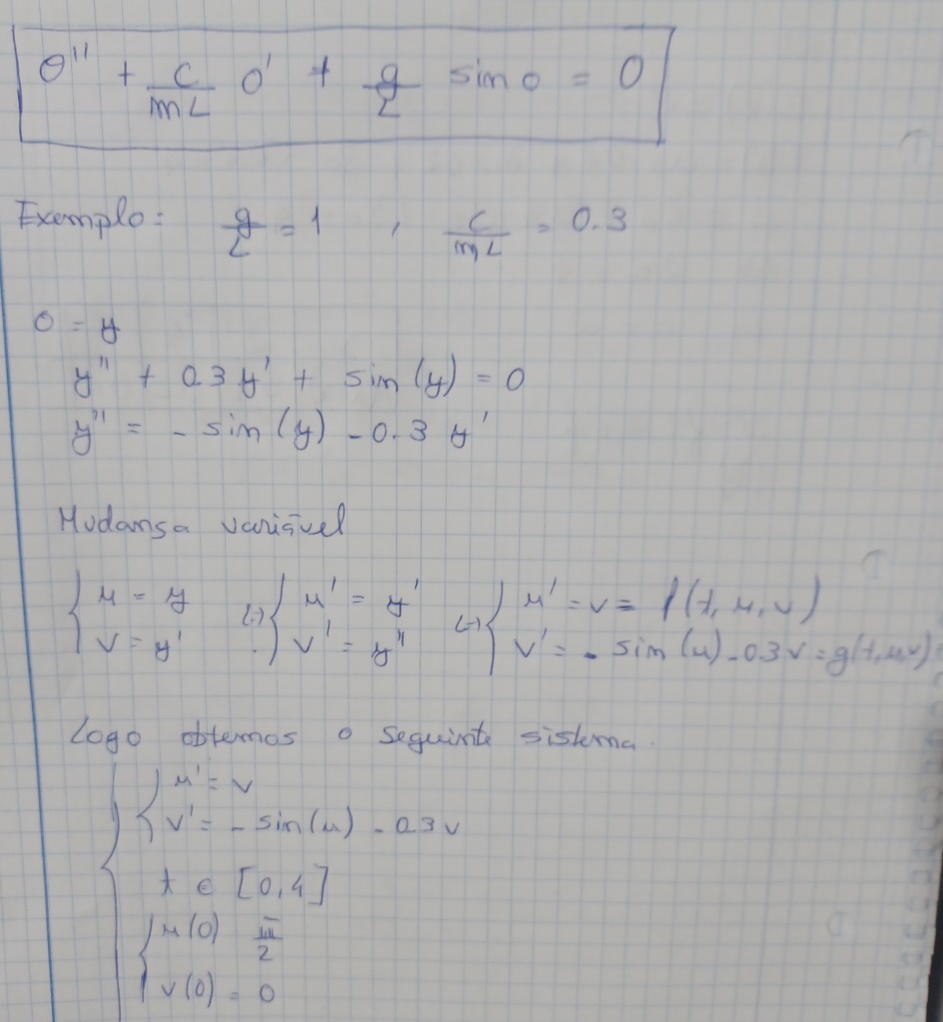 θ'' + c/mL θ' + g/L sin θ = 0
Exemplo: g/L = 1 , c/mL = 0.3
θ = y
y'' + 0.3 y' + sin(y) = 0
y'' = - sin(y) - 0.3 y'
Mudança variável
{ u = y (-) { u' = y' (-) { u' = v = f(t, u, v)
{ v = y' { v' = y'' { v' = - sin(u) - 0.3v = g(t,u,v)
Logo obtemos o seguinte sistema.
{ u' = v
{ v' = - sin(u) - 0.3v
t ∈ [0,4]
{ u(0) π/2
{ v(0) = 0